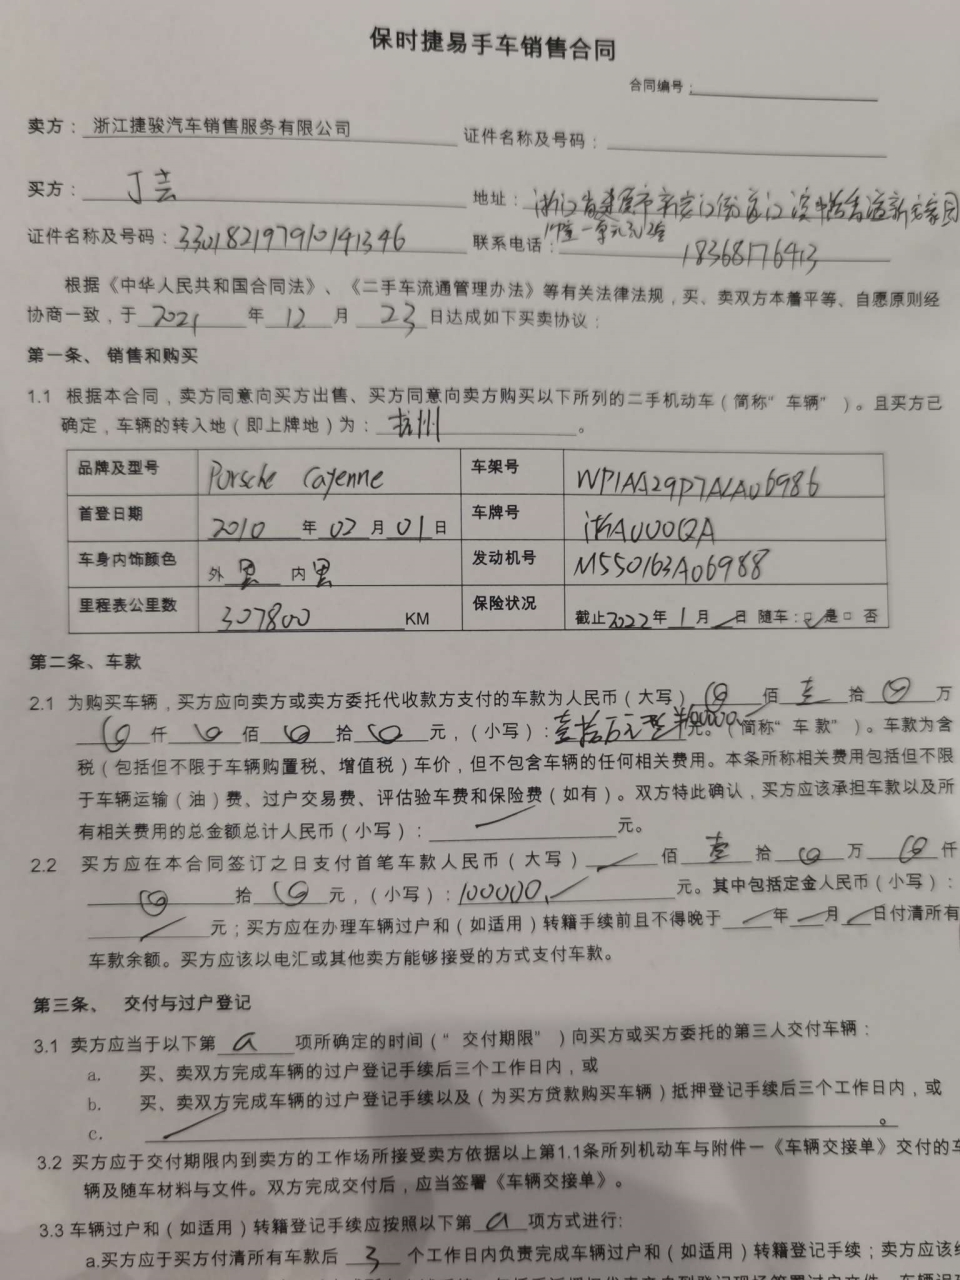 保时捷易手车销售合同
合同编号：
卖方：浙江捷骏汽车销售服务有限公司 证件名称及号码：
买方：丁芸 地址：浙江省建德市新安江街道江滨中路香溢新家园
证件名称及号码：330182197910141346 联系电话：一单元
18368176413
根据《中华人民共和国合同法》、《二手车流通管理办法》等有关法律法规，买、卖双方本着平等、自愿原则经
协商一致，于2021年12月23日达成如下买卖协议：
第一条、销售和购买
1.1 根据本合同，卖方同意向买方出售、买方同意向卖方购买以下所列的二手机动车（简称“车辆”）。且买方已
确定，车辆的转入地（即上牌地）为：杭州。
品牌及型号 Porsche Cayenne 车架号 WP1AA29P7ALA06986
首登日期 2010年02月01日 车牌号 浙A000QA
车身内饰颜色 外黑 内黑 发动机号 M550163A06988
里程表公里数 307800 KM 保险状况 截止2022年1月 日 随车：☑是□否
第二条、车款
2.1 为购买车辆，买方应向卖方或卖方委托代收款方支付的车款为人民币（大写）佰壹拾万
仟佰拾元，（小写）：壹拾万元整 100000元。（简称“车款”）。车款为含
税（包括但不限于车辆购置税、增值税）车价，但不包含车辆的任何相关费用。本条所称相关费用包括但不限
于车辆运输（油）费、过户交易费、评估验车费和保险费（如有）。双方特此确认，买方应该承担车款以及所
有相关费用的总金额总计人民币（小写）：元。
2.2 买方应在本合同签订之日支付首笔车款人民币（大写）佰壹拾万仟
拾元，（小写）：100000.元。其中包括定金人民币（小写）：
元；买方应在办理车辆过户和（如适用）转籍手续前且不得晚于年月日付清所有
车款余额。买方应该以电汇或其他卖方能够接受的方式支付车款。
第三条、 交付与过户登记
3.1 卖方应当于以下第a项所确定的时间（“交付期限”）向买方或买方委托的第三人交付车辆：
a. 买、卖双方完成车辆的过户登记手续后三个工作日内，或
b. 买、卖双方完成车辆的过户登记手续以及（为买方贷款购买车辆）抵押登记手续后三个工作日内，或
c. 。
3.2 买方应于交付期限内到卖方的工作场所接受卖方依据以上第1.1条所列机动车与附件一《车辆交接单》交付的车
辆及随车材料与文件。双方完成交付后，应当签署《车辆交接单》。
3.3 车辆过户和（如适用）转籍登记手续应按照以下第a项方式进行:
a.买方应于买方付清所有车款后3个工作日内负责完成车辆过户和（如适用）转籍登记手续；卖方应该